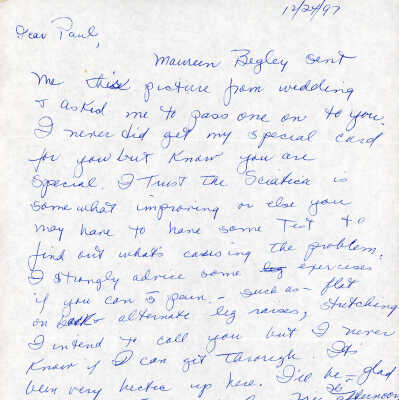 12/24/97
Dear Paul,
Maureen Begley sent
me this picture from wedding
& asked me to pass one on to you.
I never did get my special card
for you but know you are
special. I trust the Sciatica is
somewhat improving or else you
may have to have some Test to
find out what's causing the problem.
I strongly advice some leg exercises
if you can s pain. - such as - flat
on back alternate leg raises, stretching
I intend to call you but I never
know if I can get through. It's
been very hectic up here. I'll be glad
afternoon